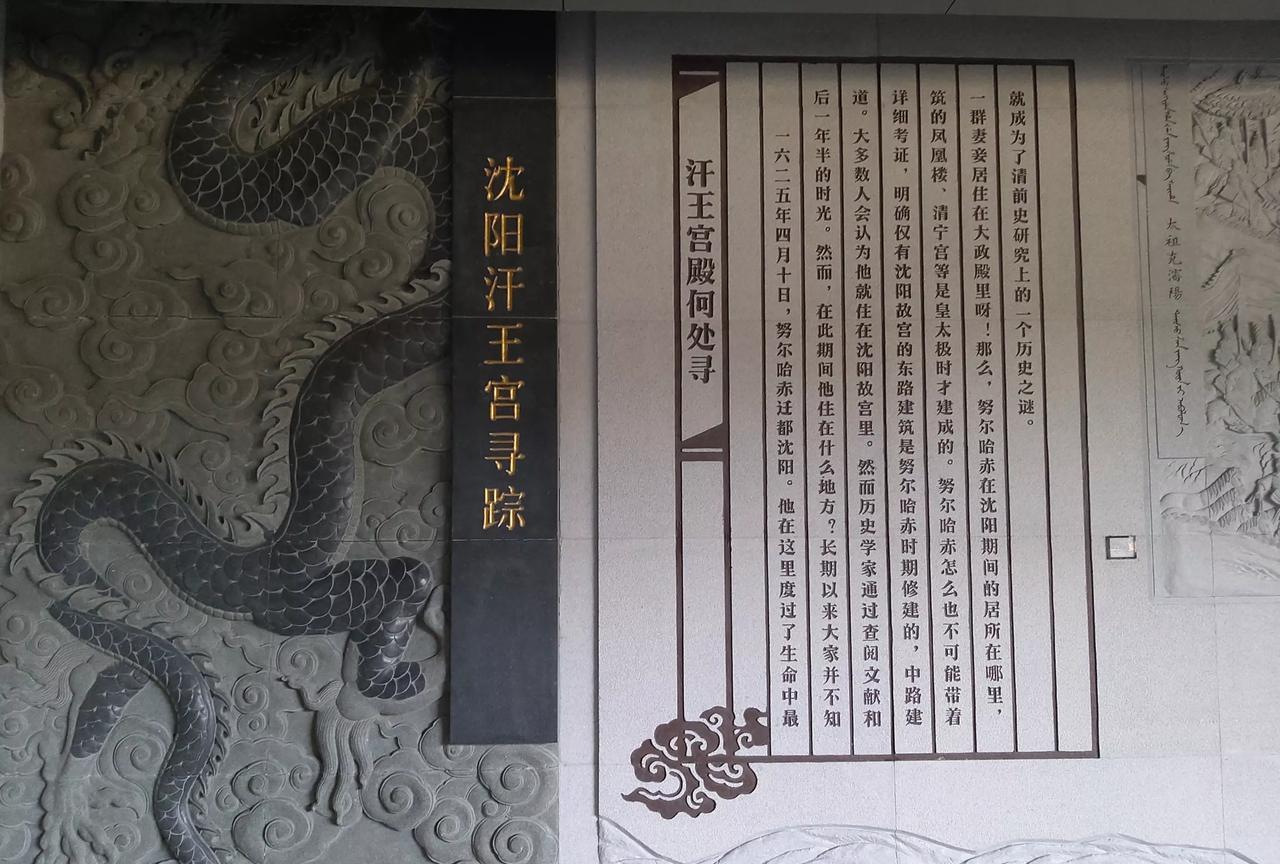 沈阳汗王宫寻踪
汗王宫殿何处寻
一六二五年四月十日，努尔哈赤迁都沈阳。他在这里度过了生命中最
后一年半的时光。然而，在此期间他住在什么地方？长期以来大家并不知
道。大多数人会认为他就住在沈阳故宫里。然而历史学家通过查阅文献和
详细考证，明确仅有沈阳故宫的东路建筑是努尔哈赤时期修建的，中路建
筑的凤凰楼、清宁宫等是皇太极时才建成的。努尔哈赤怎么也不可能带着
一群妻妾居住在大政殿里呀！那么，努尔哈赤在沈阳期间的居所在哪里，
就成为了清前史研究上的一个历史之谜。
太祖克瀋陽